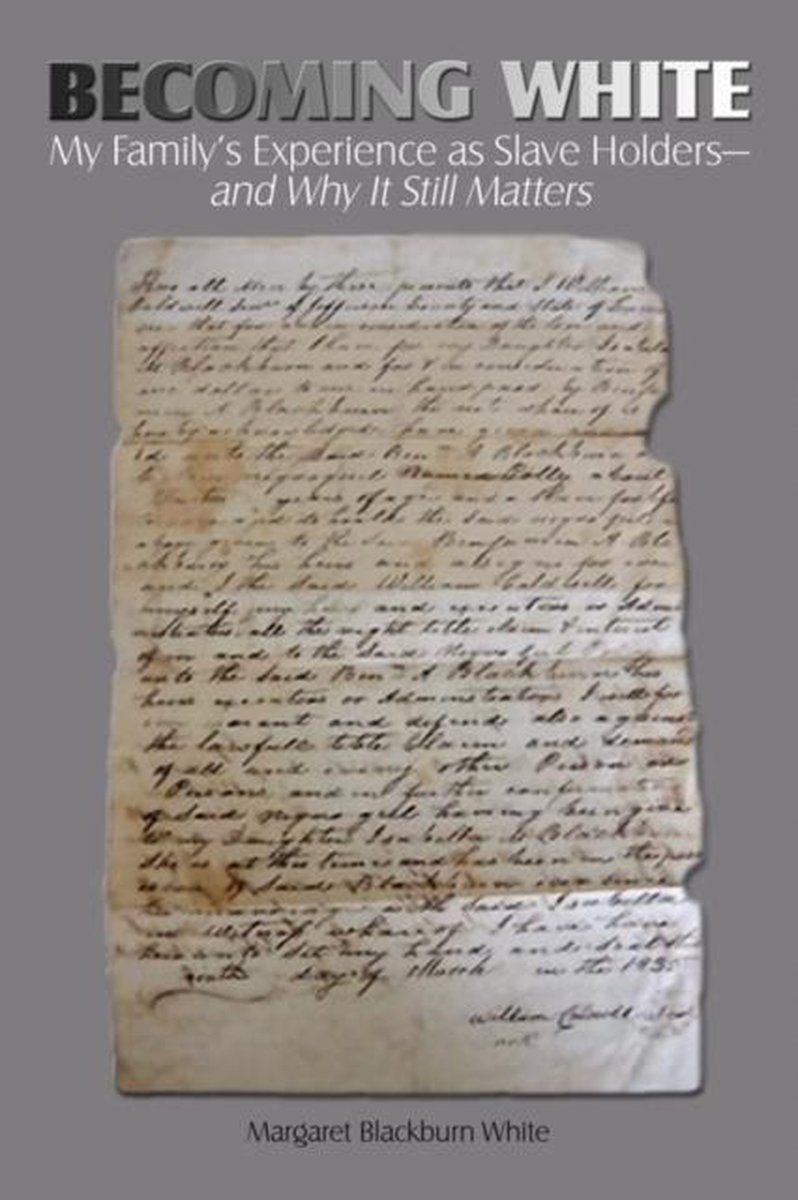 BECOMING WHITE
My Family's Experience as Slave Holders—
and Why It Still Matters
all men by these presents that I William
Caldwell Senr of Jefferson County and State of
that for and in consideration of the love and
affection that I have for my Daughter Isabella
M Blackburn and for & in consideration of
one dollar to me in hand paid by
A Blackburn the
acknowledged have
unto the said Benn A Blackburn
negro girl Named Dolly about
years of age and a Slave for life
the said negro girl
to the said Benjamin A
heirs and assigns for ever
and I the said William Caldwell for
myself my heirs and executors or
all the right title claim & interest
of in and to the Said Negro girl
unto the Said Benn A Blackburn his
heirs executors or Administrators
warant and defend also against
the lawfull title Claim and demand
of all and every other Person or
Persons and in further
of Said negro girl having been given
to my Daughter Isabella M Blackburn
She is at this time and has been in the
of Said Blackburn ever since
with said Isabella
in Witness whereof I have
hereunto Set my hand and Seal
day of March in the
William Caldwell
Margaret Blackburn White